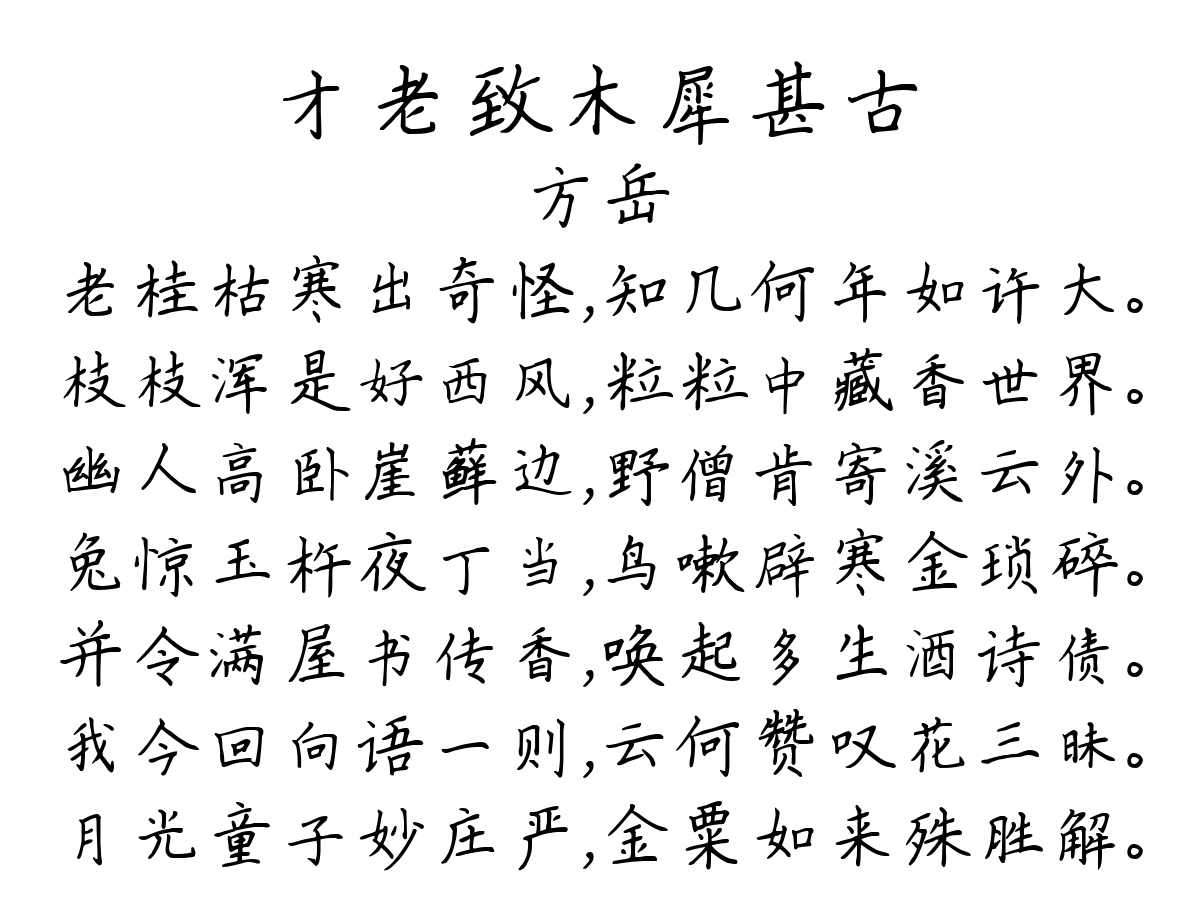 才老致木犀甚古
方岳
老桂枯寒出奇怪,知几何年如许大。
枝枝浑是好西风,粒粒中藏香世界。
幽人高卧崖藓边,野僧肯寄溪云外。
兔惊玉杵夜丁当,鸟嗽辟寒金琐碎。
并令满屋书传香,唤起多生酒诗债。
我今回向语一则,云何赞叹花三昧。
月光童子妙庄严,金粟如来殊胜解。